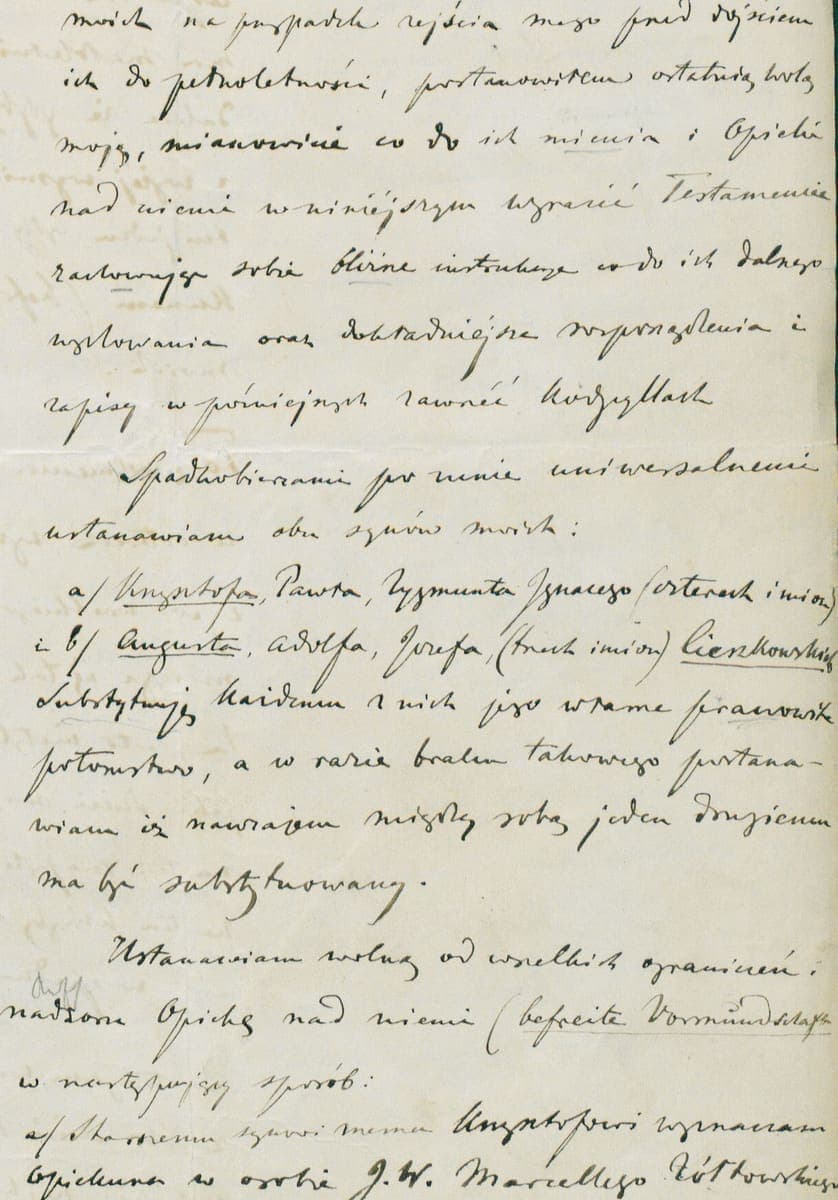 moich na przypadek zejścia mego przed dojściem
ich do pełnoletności, postanowiłem ostatnią wolą
moją, mianowicie co do ich mienia i Opieki
nad niemi w niniéjszym wyrazić Testamencie
zachowując sobie bliższe instrukcye co do ich dalszego
wychowania oraz dokładniéjsze rozporządzenia i
zapisy w późniejszych zawrzéć Kodycyllach
Spadkobiercami po mnie uniwersalnemi
ustanawiam obu synów moich:
a/ Krzysztofa, Pawła, Zygmunta Ignacego (czterech imion)
i b/ Augusta, Adolfa, Józefa, (trzech imion) Cieszkowskich
Substytuję każdemu z nich jego własne prawowite
potomstwo, a w razie braku takowego postana-
wiam iż nawzajem między sobą jeden drugiemu
ma być substytuowany.
Ustanawiam wolną od wszelkich ograniczeń i
nadzoru Opiekę nad niemi (befreite Vormundschaft
w następujący sposób:
a/ Starszemu synowi memu Krzysztofowi wyznaczam
Opiekuna w osobie J. W. Marcellego Żółtowskiego